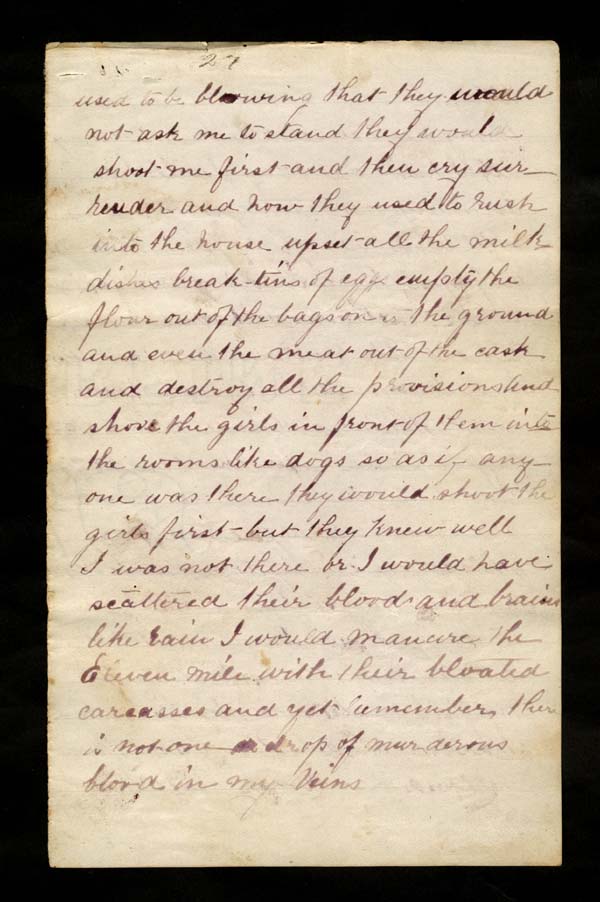 27
used to be blowing that they would
not ask me to stand they would
shoot me first and then cry sur
render and how they used to rush
into the house upset all the milk
dishes break tins of eggs empty the
flour out of the bags on to the ground
and even the meat out of the cask
and destroy all the provisions and
shove the girls in front of them into
the rooms like dogs so as if any
one was there they would shoot the
girls first but they knew well
I was not there or I would have
scattered their blood and brains
like rain I would manure the
Eleven mile with their bloated
carcasses and yet remember there
is not one drop of murderous
blood in my Veins